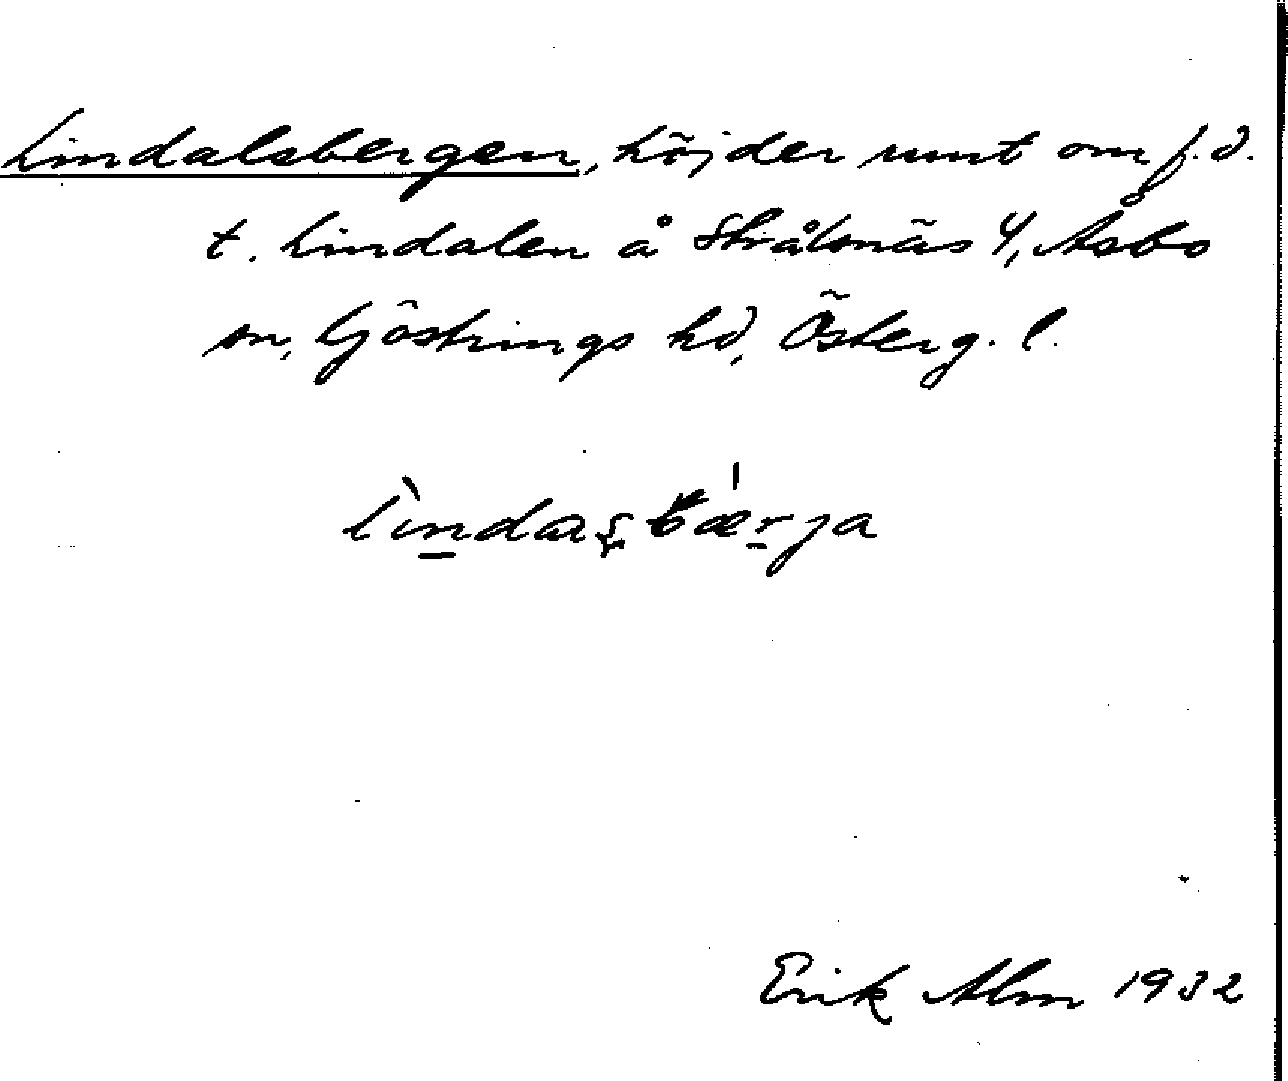 Lindalsbergen, höjder runt om f.d.
t. Lindalen å Strålsnäs 4, Åsbo
sn, Göstrings hd, Österg. l.
lìndasbǽrja
Erik Alm 1932